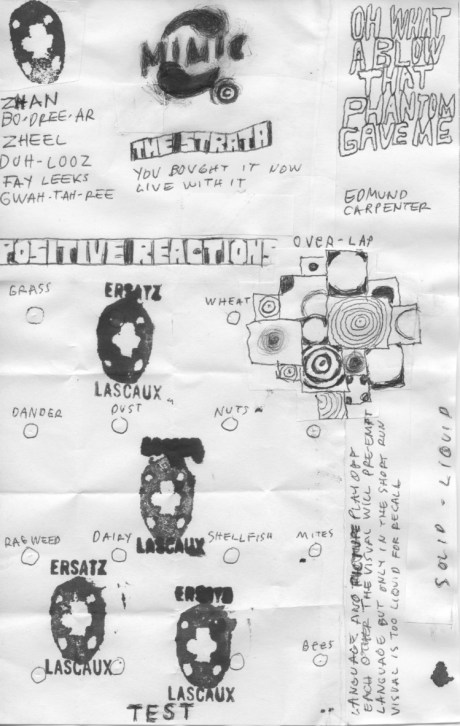 ZHAN
BO-DREE-AR
ZHEEL
DUH-LOOZ
FAY LEEKS
GWAH-TAH-REE
MIMIC
THE STRATA
YOU BOUGHT IT NOW
LIVE WITH IT
OH WHAT
A BLOW
THAT
PHANTOM
GAVE ME
EDMUND
CARPENTER
POSITIVE REACTIONS
OVER-LAP
GRASS
ERSATZ
LASCAUX
WHEAT
DANDER
DUST
NUTS
LASCAUX
RAGWEED
DAIRY
SHELLFISH
MITES
ERSATZ
LASCAUX
ERSATZ
LASCAUX
BEES
TEST
LANGUAGE AND PICTURE PLAY OFF
EACH OTHER THE VISUAL WILL PRE-EMPT
LANGUAGE BUT ONLY IN THE SHORT RUN
VISUAL IS TOO LIQUID FOR RECALL
SOLID - LIQUID